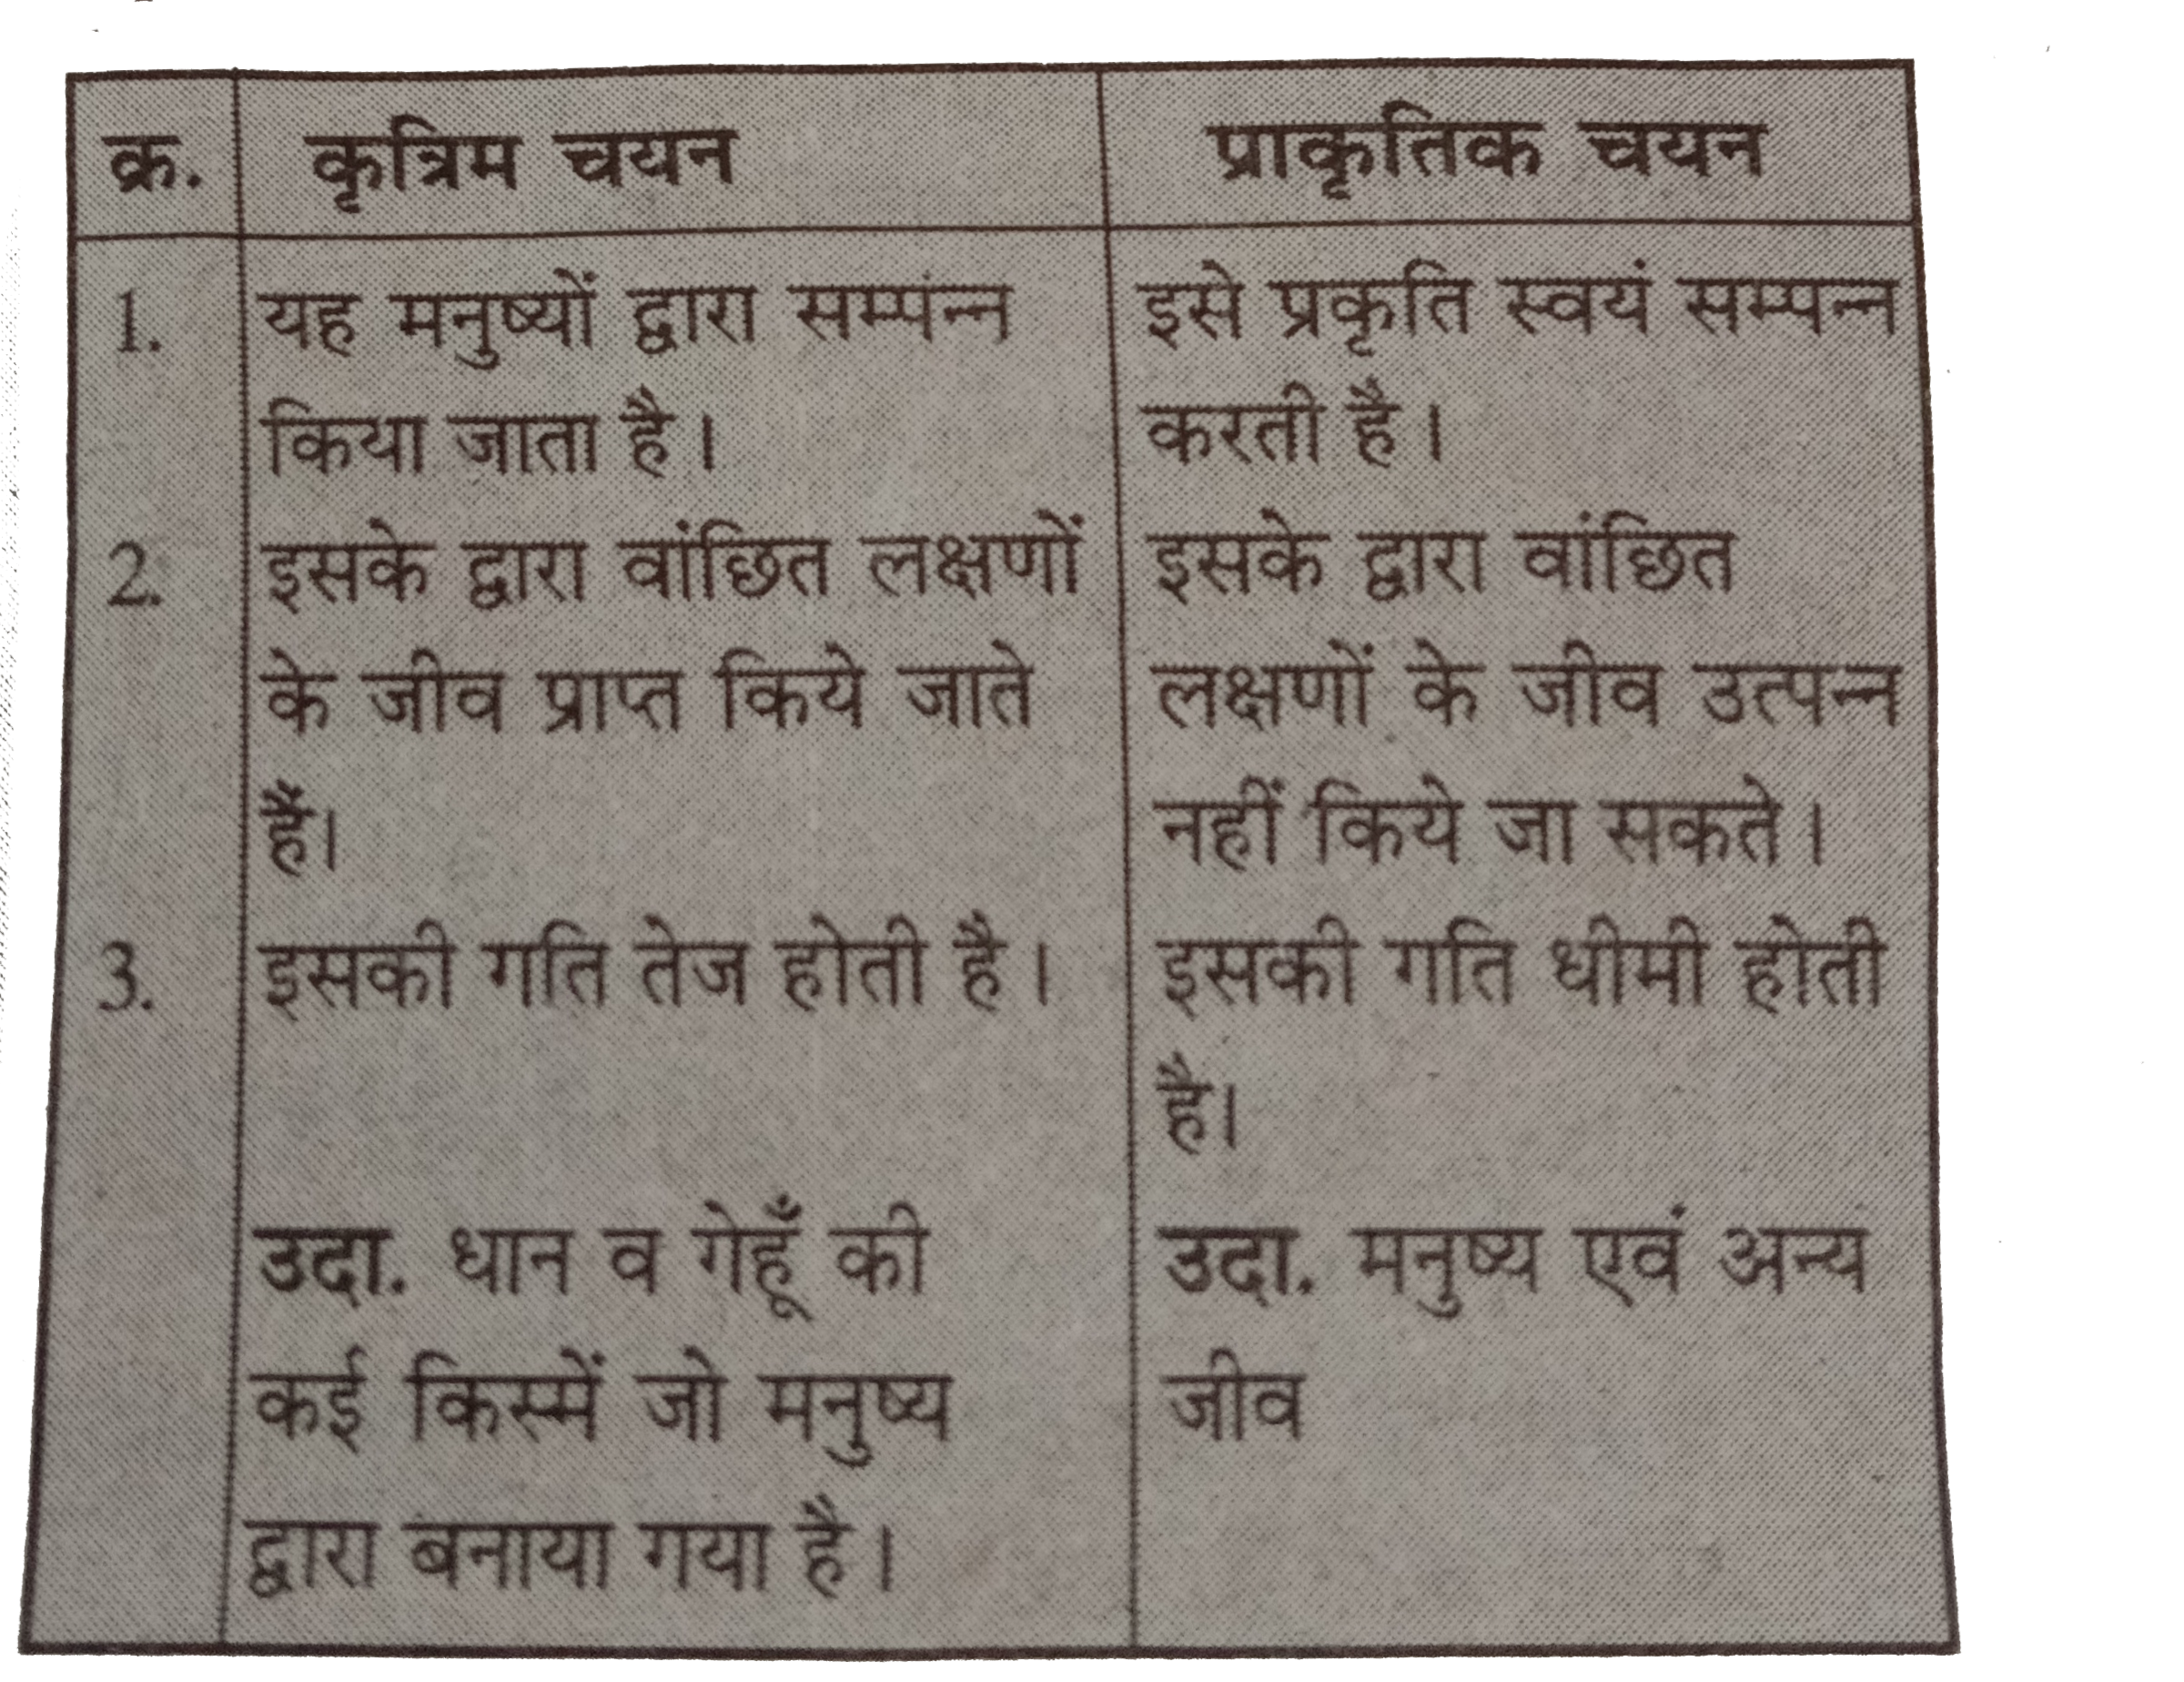 क्र. कृत्रिम चयन प्राकृतिक चयन
1. यह मनुष्यों द्वारा सम्पंन्न इसे प्रकृति स्वयं सम्पन्न
किया जाता है। करती है।
2. इसके द्वारा वांछित लक्षणों इसके द्वारा वांछित
के जीव प्राप्त किये जाते लक्षणों के जीव उत्पन्न
हैं। नहीं किये जा सकते।
3. इसकी गति तेज होती है। इसकी गति धीमी होती
है।
उदा. धान व गेहूँ की उदा. मनुष्य एवं अन्य
कई किस्में जो मनुष्य जीव
द्वारा बनाया गया है।